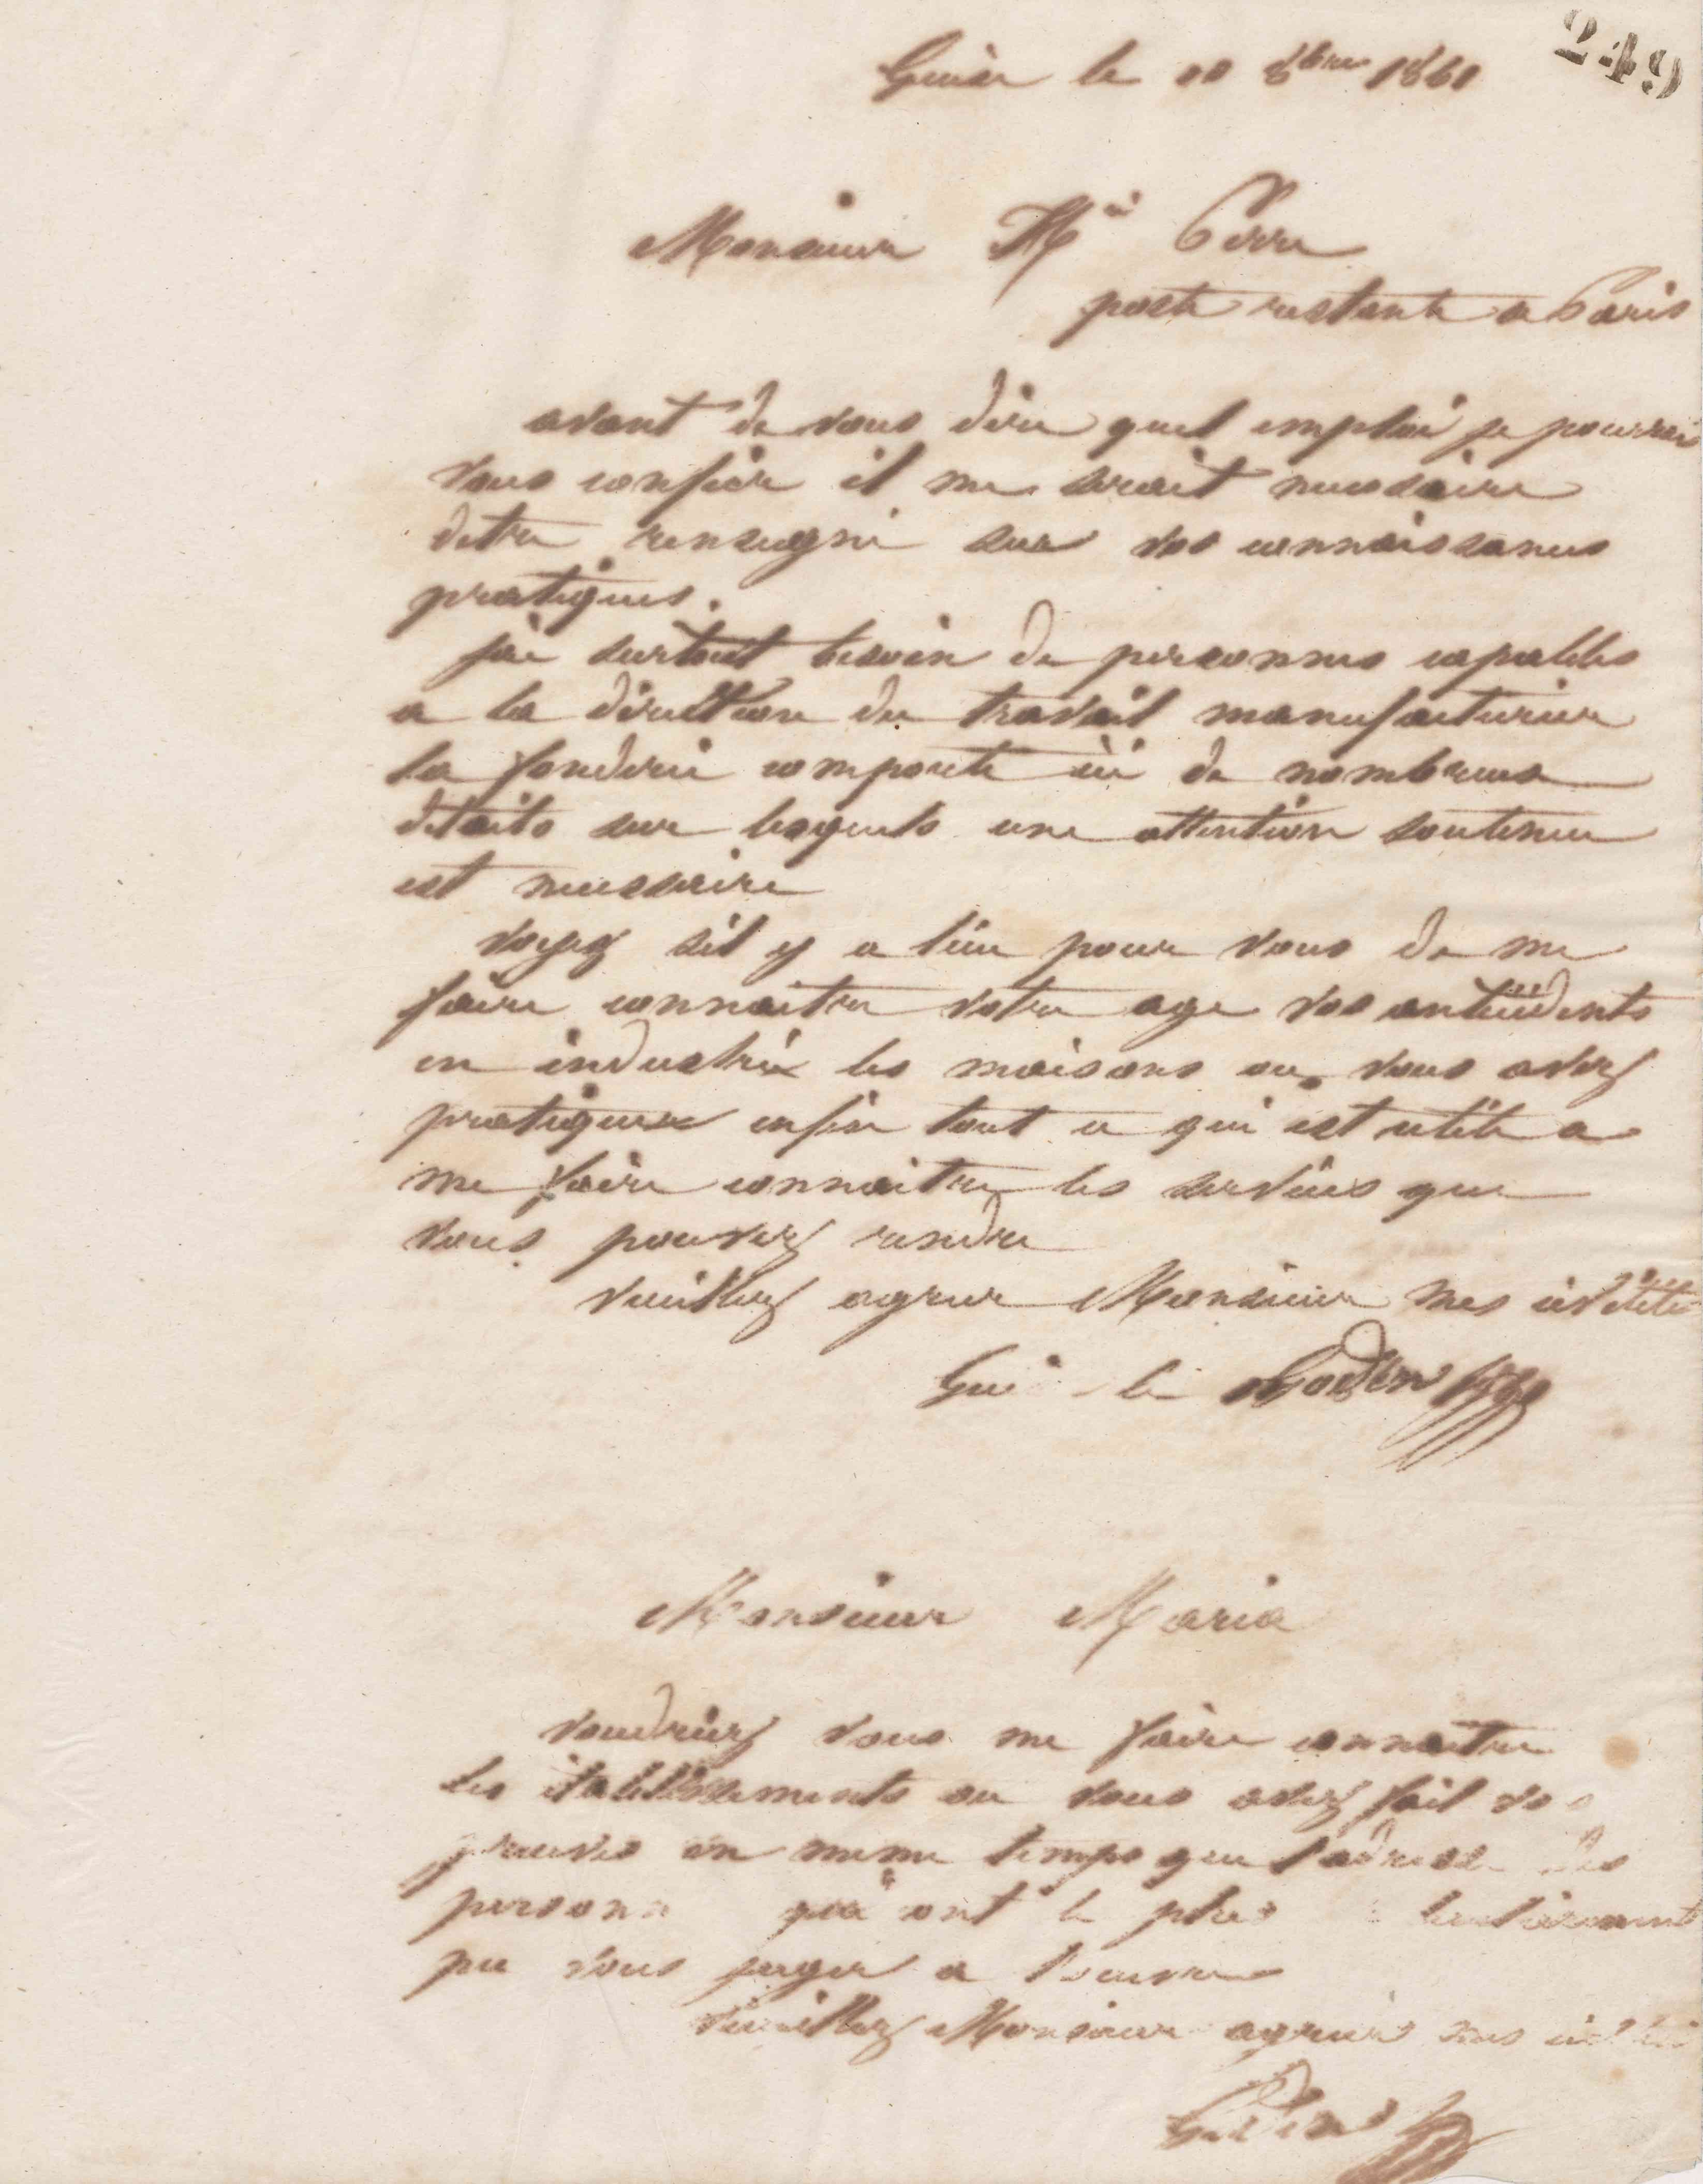 249
Guise le 10 8bre 1861
Monsieur Mie Perre
poste restante a Paris
avant de vous dire quel emploi je pourrai
vous confier il me serait necessaire
detre renseigné sur vos connaissances
pratiques.
jai surtout besoin de personnes capables
a la direction du travail manufacturier
la fonderie comporte ici de nombreux
details sur lesquels une attention soutenue
est necessaire
voyez sil y a lieu pour vous de me
faire connaitre votre age vos antécédents
en industrie les maisons ou vous avez
pratiqué enfin tout ce qui est utile a
me faire connaitre les services que
vous pouvez rendre
veuillez agreer Monsieur mes civilités
Godin
Monsieur Maria
voudriez vous me faire connaitre
les établissements ou vous avez fait vos
preuves en meme temps que l'adresse des
personn qui ont le plus
pu vous juger a l'oeuvre
Veuillez Monsieur agréer mes civilités
Godin